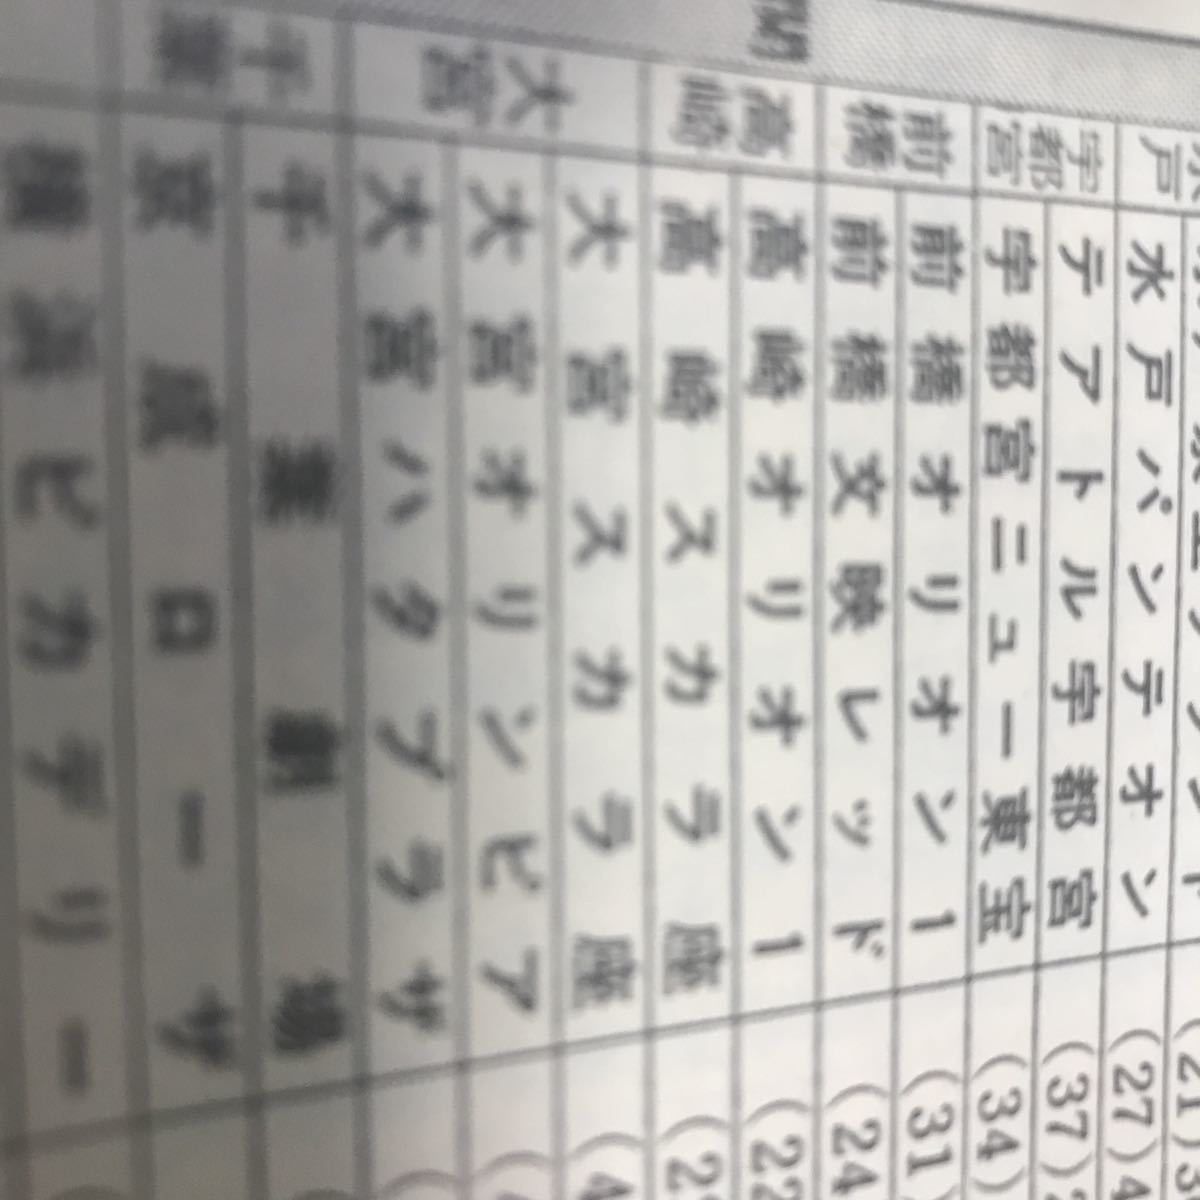 関
戸 水戸パンテオン (27)4
宇都宮 テアトル宇都宮 (37)
宇都宮ニュー東宝 (34)
前橋 前橋オリオン1 (31)
前橋文映レッド (24
高崎 高崎オリオン1 (22
高崎スカラ座 (2
大宮 大宮スカラ座 (4
大宮オリンピア (
大宮ハタプラザ (
千葉 千葉劇場
京成ローザ
横浜ピカデリー